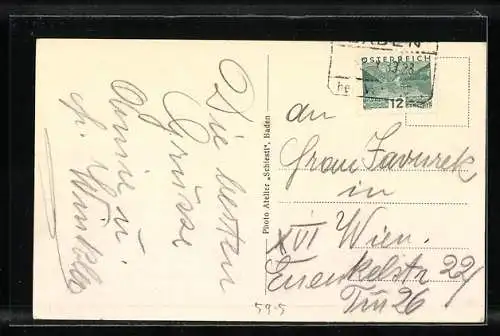 Die besten
Grüsse
Annie u.
Winkler
Photo Atelier „Schiestl", Baden
BADEN
ÖSTERREICH
12
an
Frau Javurek
in
XVI Wien.
Enenkelstr 22/
Tür 26
59.5